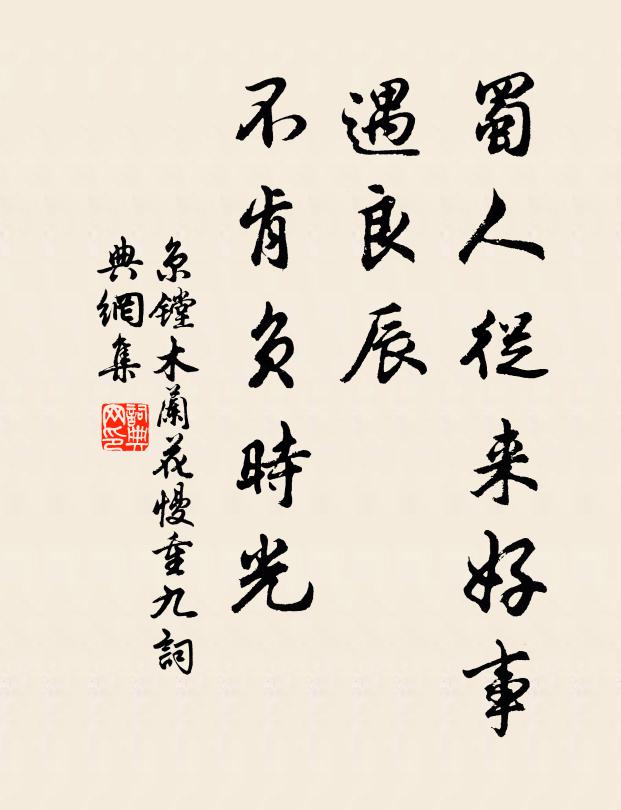 蜀人從来好事
遇良辰
不肯負時光
京鏜木蘭花慢重九詞
典網集
詞典
网印